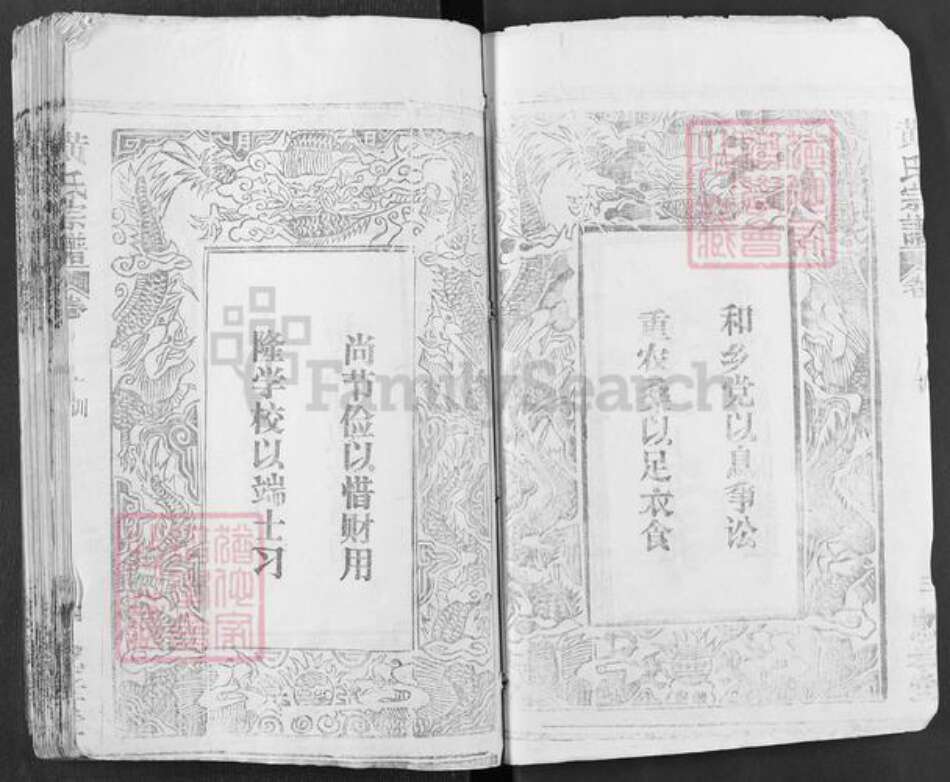 和乡党以息争讼
重农桑以足衣食
尚节俭以惜财用
隆学校以端士习
黄氏宗谱
黄氏宗谱
FamilySearch